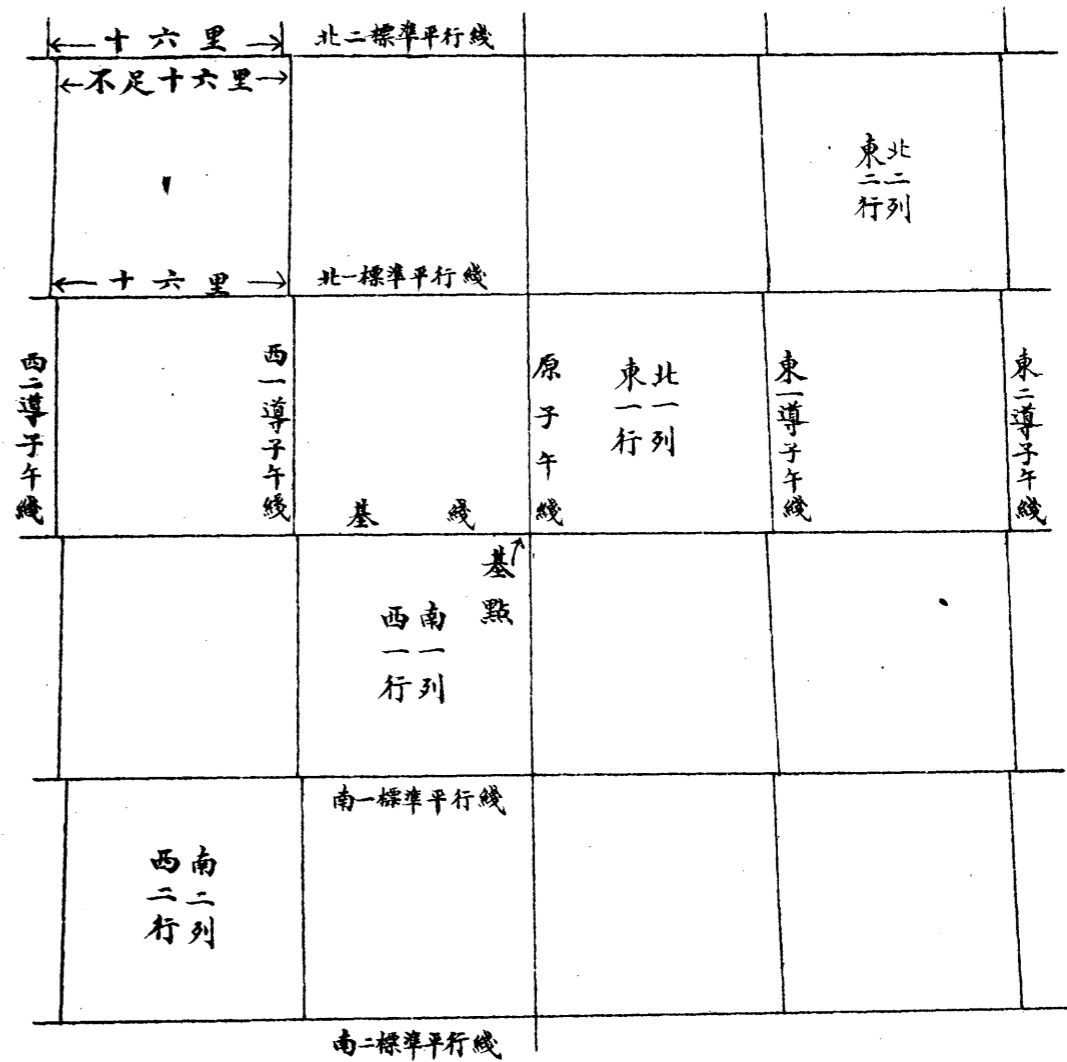 十六里
北二標準平行綫
不足十六里
北二列
東二行
十六里
北一標準平行綫
西二導子午綫
西一導子午綫
原子午綫
北一列
東一行
東一導子午綫
東二導子午綫
基綫
基點
南一列
西一行
南一標準平行綫
南二列
西二行
南二標準平行綫